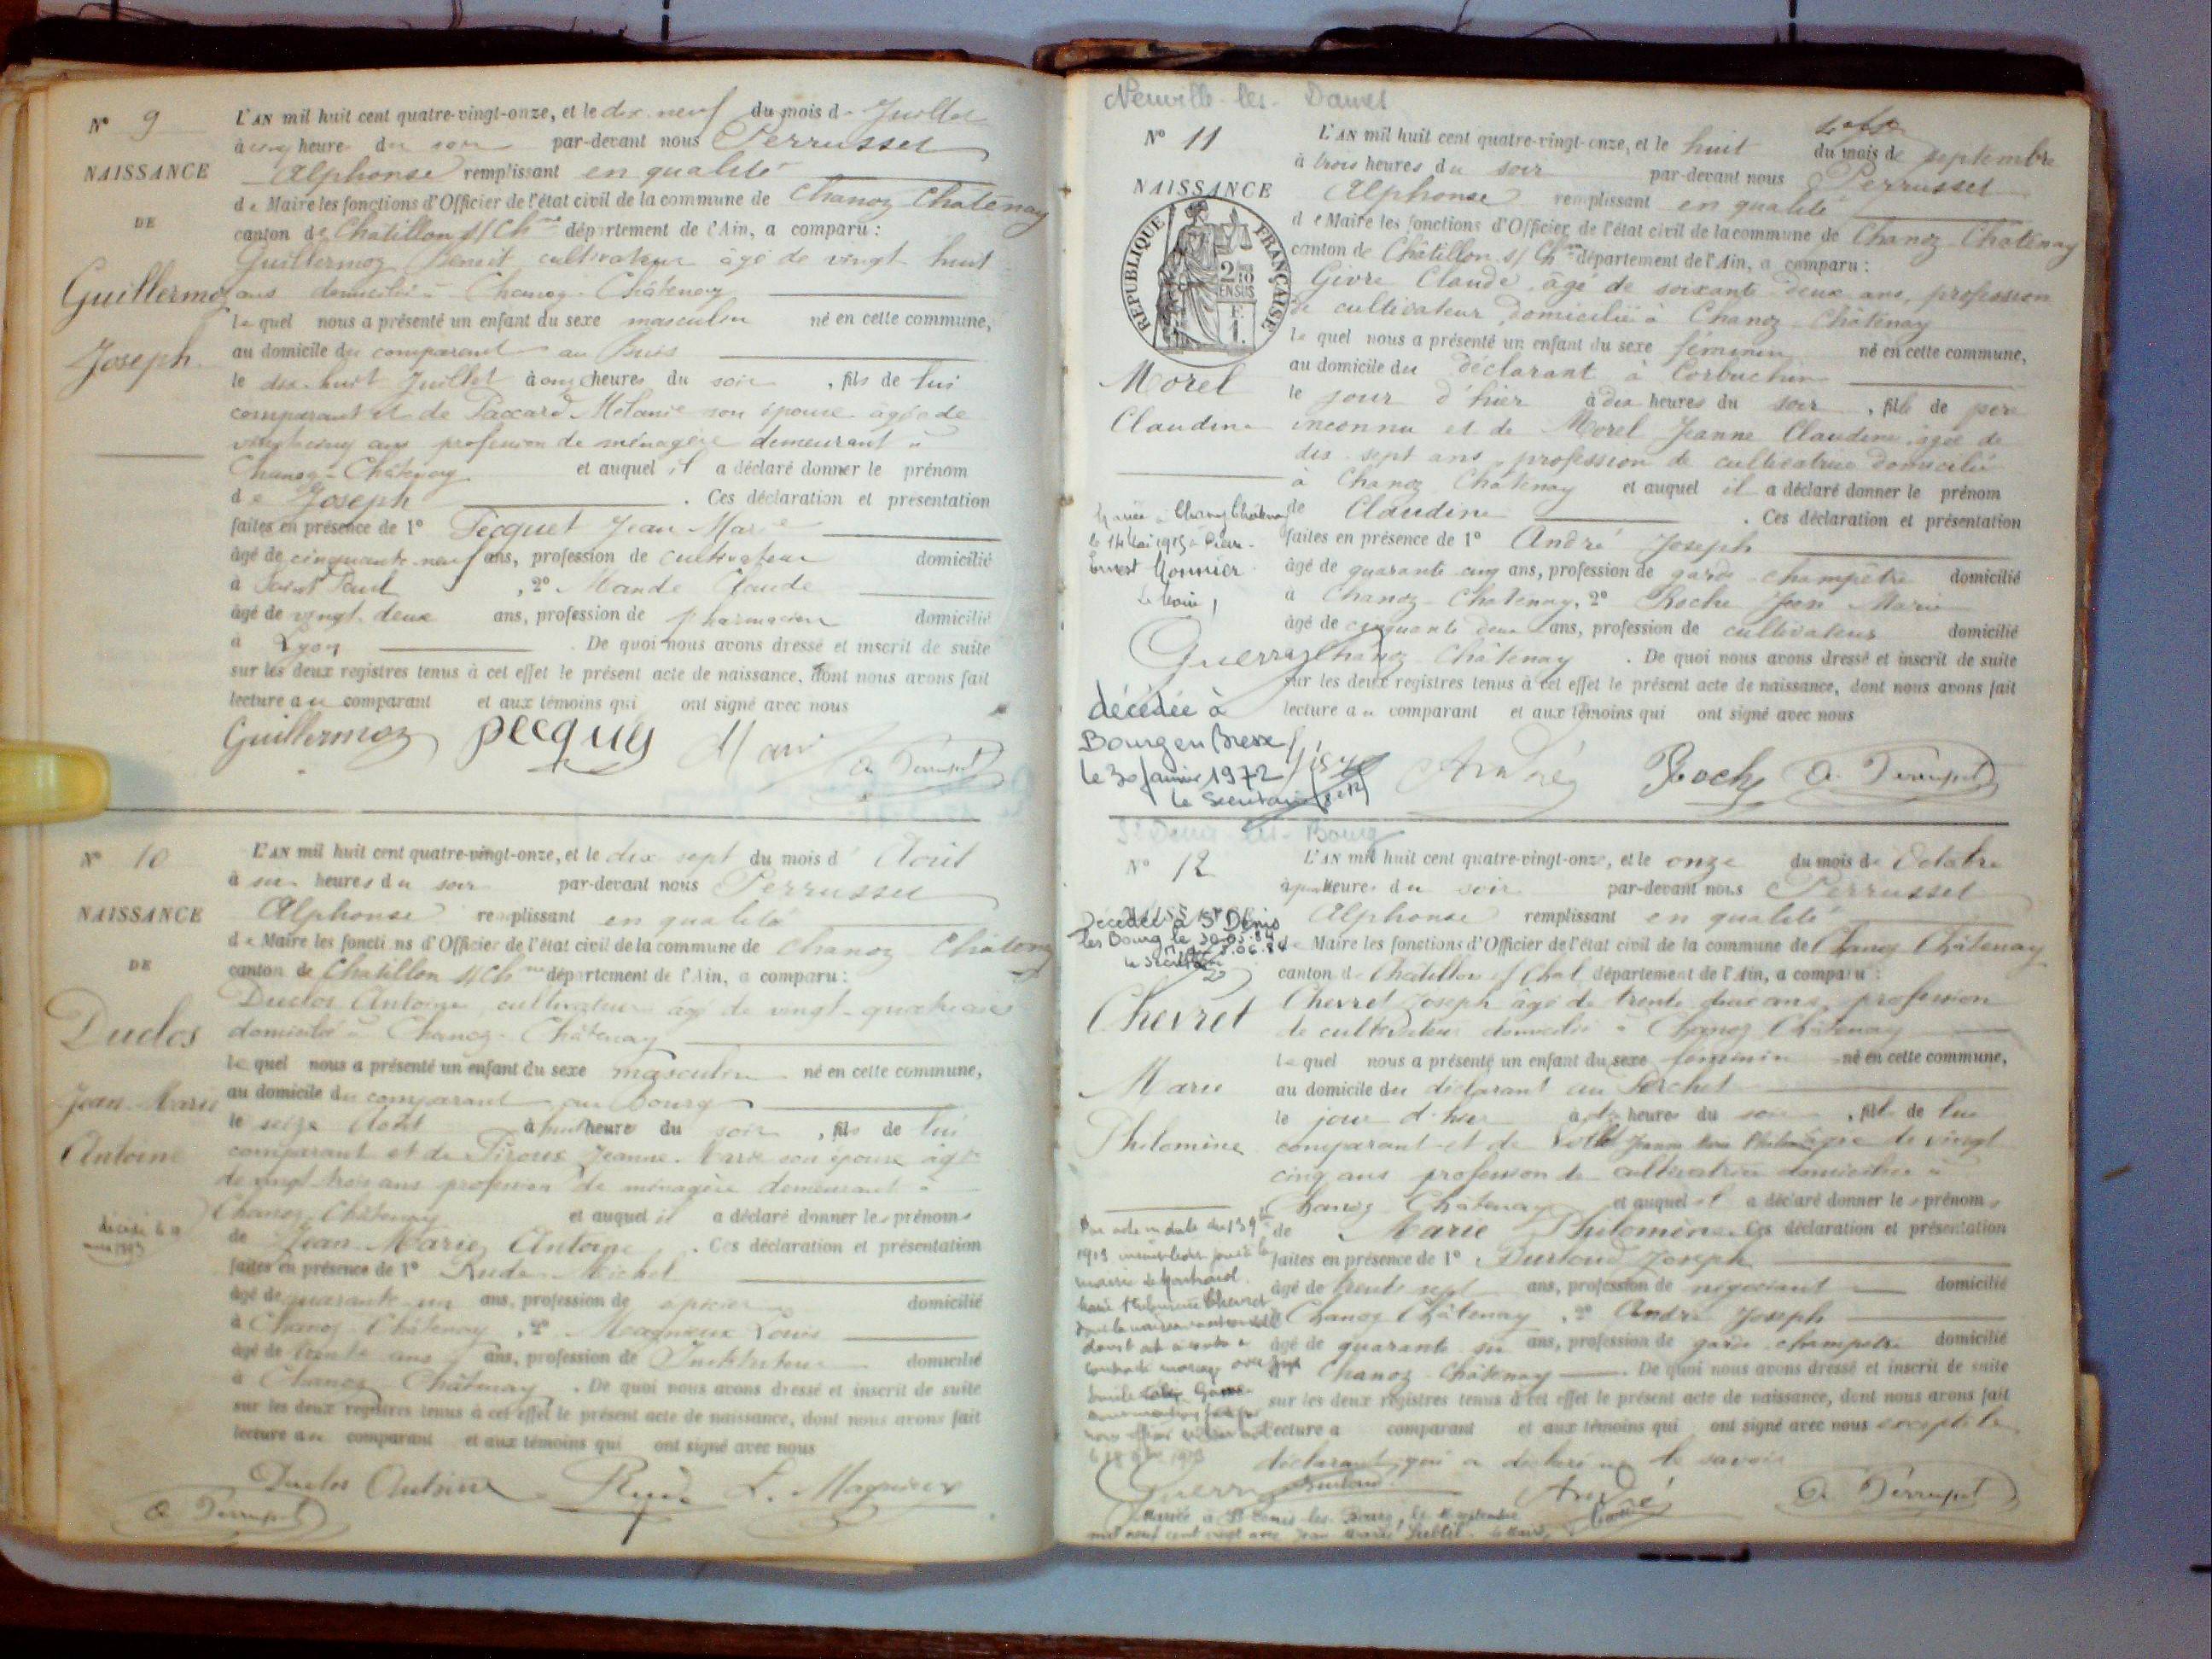 N° 9
NAISSANCE
DE
Guillermoz
Joseph
L'AN mil huit cent quatre-vingt-onze, et le dix neuf du mois d Juillet
à cinq heures du soir par-devant nous Perrusset
Alphonse remplissant en qualité
de Maire les fonctions d'Officier de l'état civil de la commune de Chanoz Châtenay
canton de Chatillon s/ Chne département de l'Ain, a comparu :
Guillermoz Benoit cultivateur âgé de vingt huit
ans domicilié à Chanoz-Châtenay
lequel nous a présenté un enfant du sexe masculin né en cette commune,
au domicile du comparant au Buis
le dix-huit Juillet à onze heures du soir, fils de lui
comparant et de Paccard Mélanie son épouse âgée de
vingt cinq ans profession de ménagère demeurant à
Chanoz-Châtenay et auquel il a déclaré donner le prénom
de Joseph. Ces déclaration et présentation
faites en présence de 1° Pecquet Jean Marie
âgé de cinquante-neuf ans, profession de cultivateur domicilié
à Saint Paul, 2° Mande Claude
âgé de vingt-deux ans, profession de pharmacien domicilié
à Lyon. De quoi nous avons dressé et inscrit de suite
sur les deux registres tenus à cet effet le présent acte de naissance, dont nous avons fait
lecture au comparant et aux témoins qui ont signé avec nous
Guillermoz pecquey A. Perrusset
N° 10
NAISSANCE
DE
Duclos
Jean-Marie
Antoine
L'AN mil huit cent quatre-vingt-onze, et le dix sept du mois d' Août
à six heures du soir par-devant nous Perrusset
Alphonse remplissant en qualité
de Maire les fonctions d'Officier de l'état civil de la commune de Chanoz Châtenay
canton de Chatillon s/ Chne département de l'Ain, a comparu :
Duclos Antoine, cultivateur âgé de vingt-quatre ans
domicilié à Chanoz-Châtenay
lequel nous a présenté un enfant du sexe masculin né en cette commune,
au domicile du comparant au Bourg
le seize Août à huit heures du soir, fils de lui
comparant et de Piroux Jeanne-Marie son épouse âgée
de vingt trois ans profession de ménagère demeurant à
Chanoz-Châtenay et auquel il a déclaré donner les prénoms
de Jean-Marie Antoine. Ces déclaration et présentation
faites en présence de 1° Rude Michel
âgé de quarante-un ans, profession de épicier domicilié
à Chanoz-Châtenay, 2° Magnieux Louis
âgé de trente ans, profession de Instituteur domicilié
à Chanoz Châtenay. De quoi nous avons dressé et inscrit de suite
sur les deux registres tenus à cet effet le présent acte de naissance, dont nous avons fait
lecture au comparant et aux témoins qui ont signé avec nous
Duclos Antoine Rude L. Magnieux
A. Perrusset
Neuville-les-Dames
N° 11
NAISSANCE
RÉPUBLIQUE FRANÇAISE
Morel
Claudine
L'AN mil huit cent quatre-vingt-onze, et le huit du mois de septembre
à trois heures du soir par-devant nous Perrusset
Alphonse remplissant en qualité
de Maire les fonctions d'Officier de l'état civil de la commune de Chanoz Châtenay
canton de Châtillon s/ Chne département de l'Ain, a comparu :
Givre Claude, âgé de soixante deux ans, profession
de cultivateur, domicilié à Chanoz Châtenay
lequel nous a présenté un enfant du sexe féminin né en cette commune,
au domicile du déclarant à Corbuchin
le jour d'hier à dix heures du soir, fille de père
inconnu et de Morel Jeanne Claudine âgée de
dix-sept ans, profession de cultivatrice domiciliée
à Chanoz Châtenay et auquel il a déclaré donner le prénom
de Claudine. Ces déclaration et présentation
faites en présence de 1° André Joseph
âgé de quarante cinq ans, profession de garde-champêtre domicilié
à Chanoz-Châtenay, 2° Roche Jean Marie
âgé de cinquante deux ans, profession de cultivateur domicilié
Chanoz Châtenay. De quoi nous avons dressé et inscrit de suite
sur les deux registres tenus à cet effet le présent acte de naissance, dont nous avons fait
lecture au comparant et aux témoins qui ont signé avec nous
Mariée à Chanoz Châtenay
Ernest Monnier
Le Maire,
Guerry
décédée à
Bourg en Bresse
le 30 Janvier 1972
le Secrétaire
Givre André Roche A. Perrusset
St Denis-les-Bourg
N° 12
Décédée à St Denis
les Bourg le 30.05.84
Chevret
Marie
Philomène
L'AN mil huit cent quatre-vingt-onze, et le onze du mois de Octobre
heure du soir par-devant nous Perrusset
Alphonse remplissant en qualité
de Maire les fonctions d'Officier de l'état civil de la commune de Chanoz Châtenay
canton de Châtillon s/ Chal. département de l'Ain, a comparu :
Chevret Joseph âgé de trente deux ans, profession
de cultivateur domicilié à Chanoz Châtenay
lequel nous a présenté un enfant du sexe féminin né en cette commune,
au domicile du déclarant au Perchet
le jour d'hier à dix heures du soir, fille de lui
comparant et de âgée de vingt
cinq ans profession de cultivatrice domiciliée à
Chanoz Châtenay et auquel il a déclaré donner les prénoms
de Marie Philomène. Ces déclaration et présentation
faites en présence de 1° Durtoud Joseph
âgé de trente sept ans, profession de négociant domicilié
Chanoz Châtenay, 2° André Joseph
âgé de quarante six ans, profession de garde champêtre domicilié
Chanoz-Châtenay. De quoi nous avons dressé et inscrit de suite
sur les deux registres tenus à cet effet le présent acte de naissance, dont nous avons fait
lecture a comparant et aux témoins qui ont signé avec nous excepté le
déclarant qui a déclaré ne le savoir
Guerry Durtoud André A. Perrusset
Mariée à St Denis-les-Bourg, le
mil neuf cent vingt avec Jean Marie le Maire,